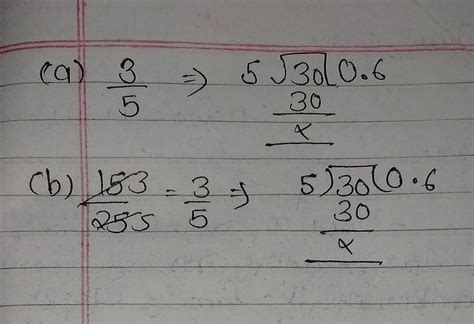 (a) 3/5 ⇒ 5 √30 ( 0.6
30
x
(b) 153/255 = 3/5 ⇒ 5 ) 30 ( 0.6
30
x